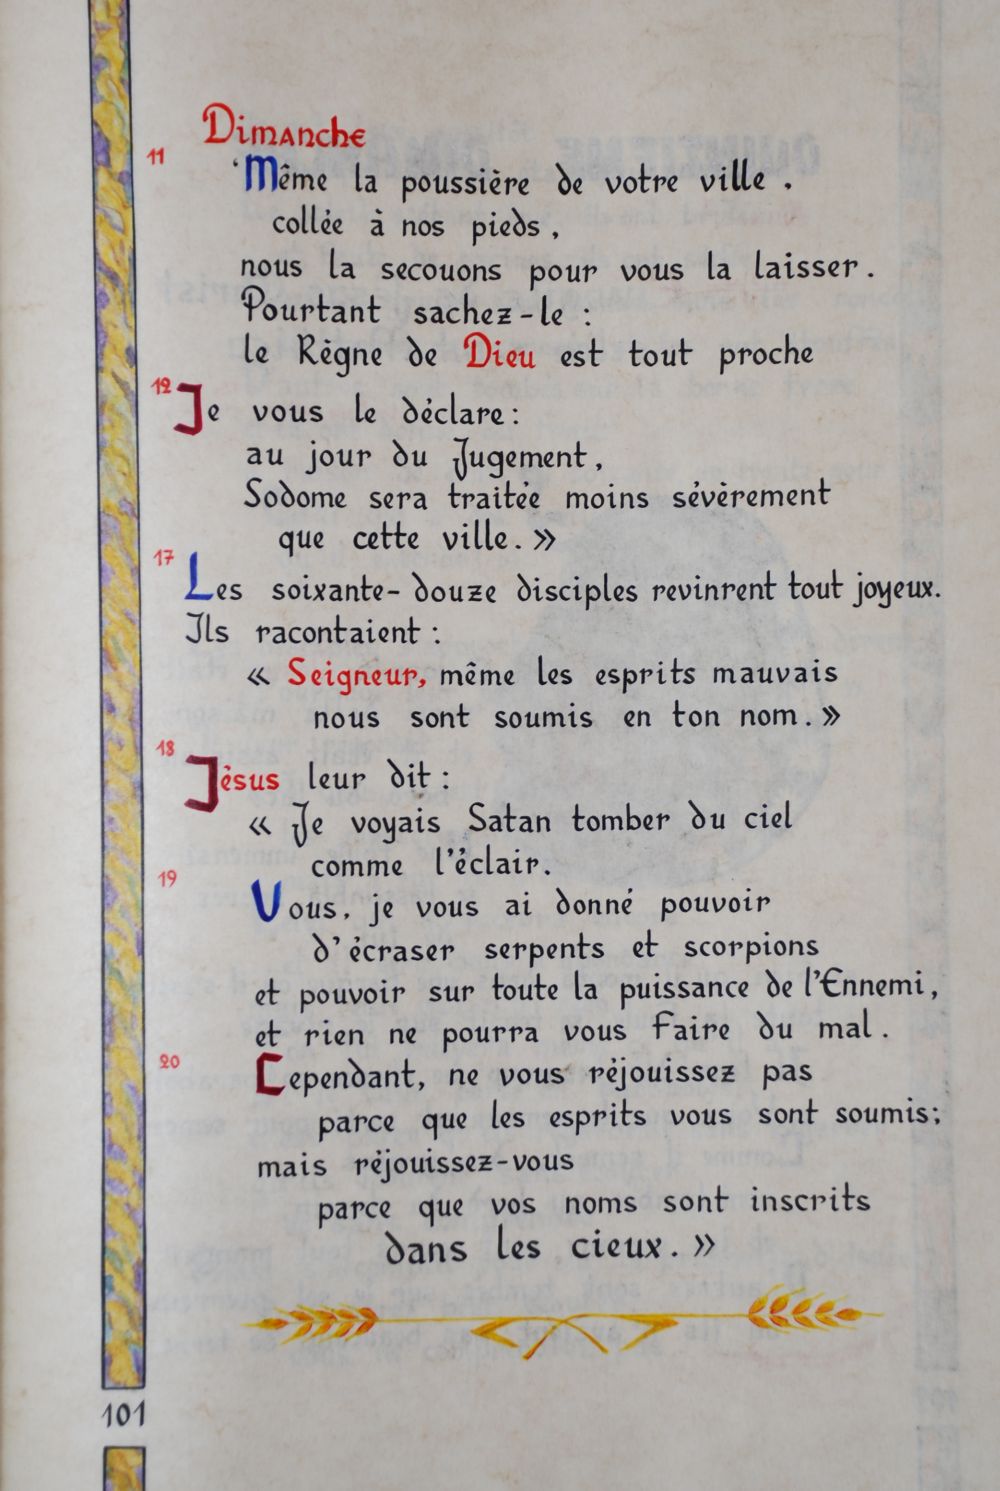 Dimanche
11
'Même la poussière de votre ville,
collée à nos pieds,
nous la secouons pour vous la laisser.
Pourtant sachez-le :
le Règne de Dieu est tout proche
12
Je vous le déclare :
au jour du Jugement,
Sodome sera traitée moins sévèrement
que cette ville. »
17
Les soixante-douze disciples revinrent tout joyeux.
Ils racontaient :
« Seigneur, même les esprits mauvais
nous sont soumis en ton nom. »
18
Jésus leur dit :
« Je voyais Satan tomber du ciel
comme l'éclair.
19
Vous, je vous ai donné pouvoir
d'écraser serpents et scorpions
et pouvoir sur toute la puissance de l'Ennemi,
et rien ne pourra vous faire du mal.
20
Cependant, ne vous réjouissez pas
parce que les esprits vous sont soumis ;
mais réjouissez-vous
parce que vos noms sont inscrits
dans les cieux. »
101